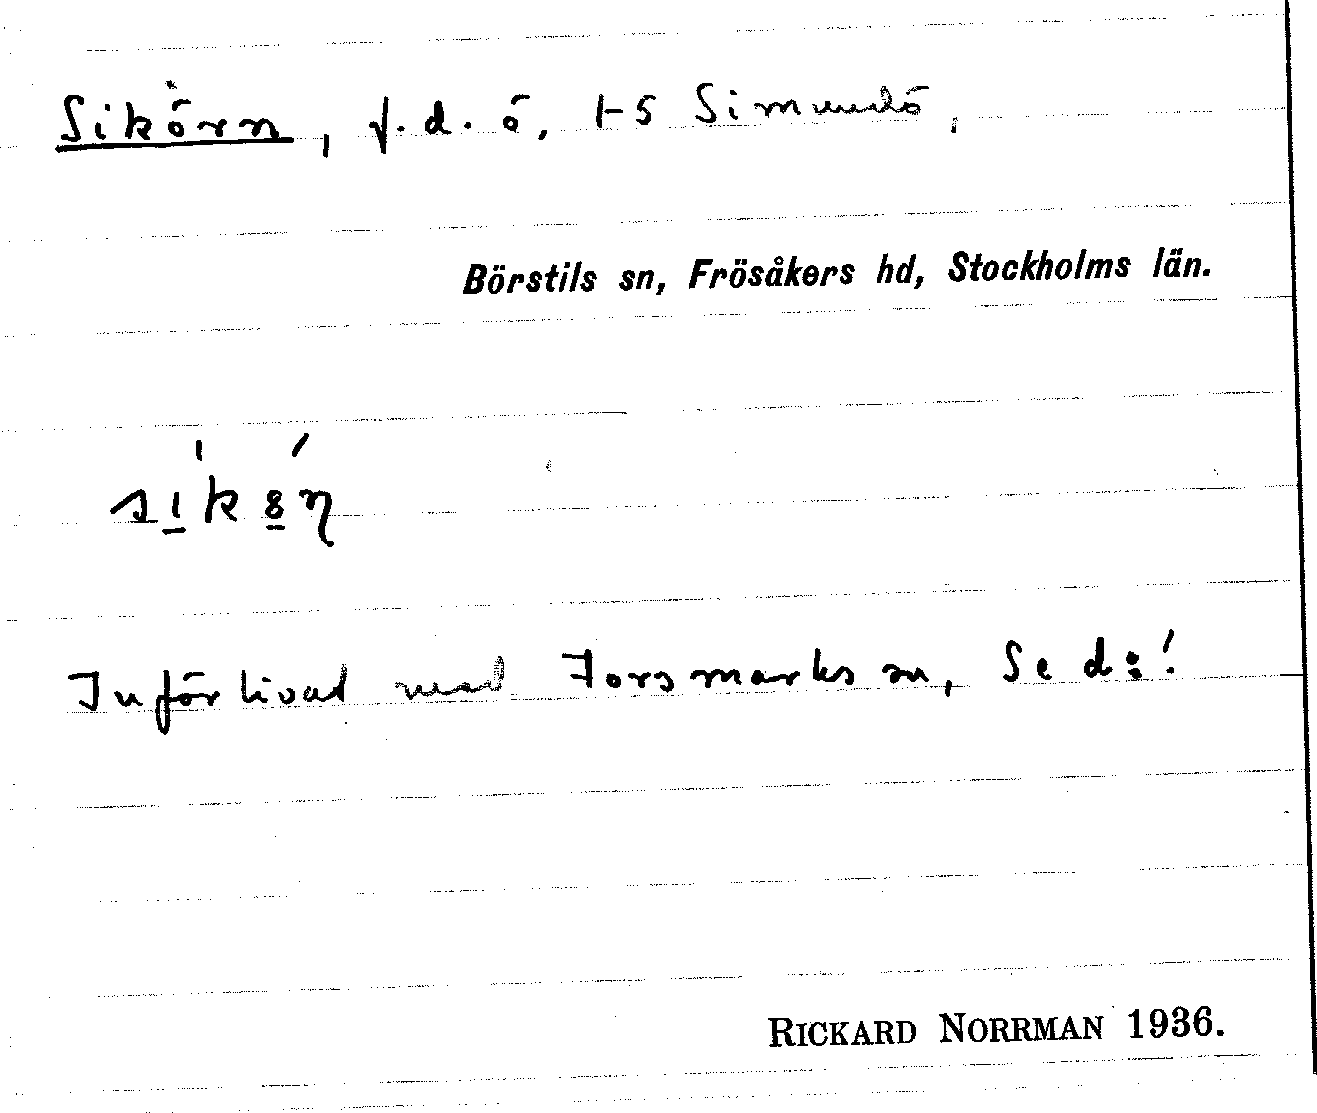 Sikörn, f.d. ö, t S Simundö,
Börstils sn, Frösåkers hd, Stockholms län.
sikön
Införlivad med Forsmarks sn, Se d:!
RICKARD NORRMAN 1936.